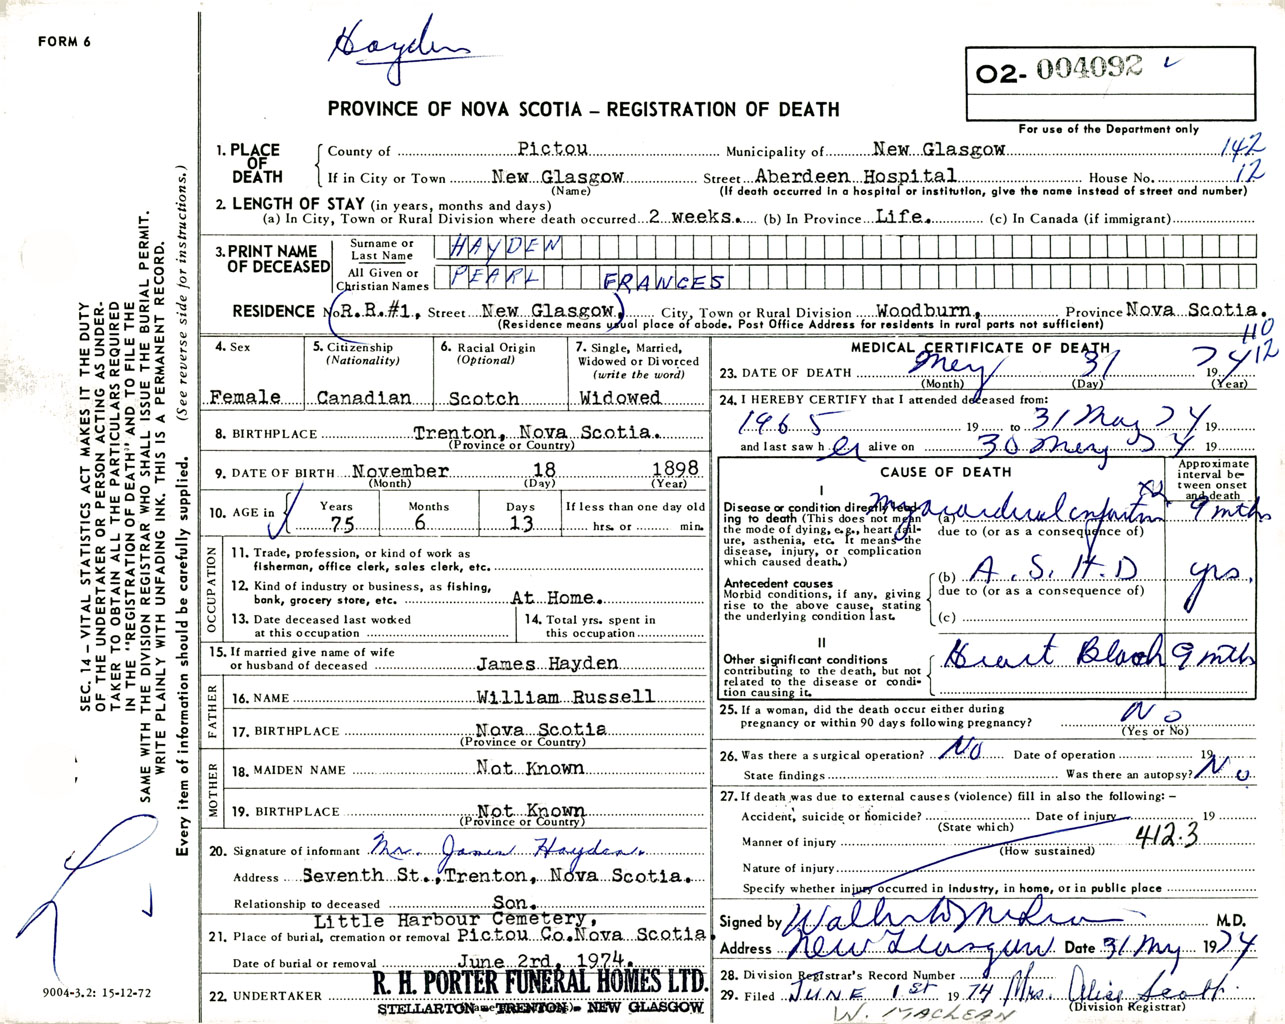 FORM 6
Hayden
O2- 004092
PROVINCE OF NOVA SCOTIA – REGISTRATION OF DEATH
For use of the Department only
1. PLACE OF DEATH
County of Pictou Municipality of New Glasgow 142
If in City or Town New Glasgow Street Aberdeen Hospital House No. 12
(Name) (If death occurred in a hospital or institution, give the name instead of street and number)
2. LENGTH OF STAY (in years, months and days)
(a) In City, Town or Rural Division where death occurred 2 weeks. (b) In Province Life. (c) In Canada (if immigrant)
3. PRINT NAME OF DECEASED
Surname or Last Name HAYDEN
All Given or Christian Names PEARL FRANCES
RESIDENCE No R.R.#1, Street New Glasgow, City, Town or Rural Division Woodburn, Province Nova Scotia.
(Residence means usual place of abode. Post Office Address for residents in rural parts not sufficient)
110
12
4. Sex
Female
5. Citizenship
(Nationality)
Canadian
6. Racial Origin
(Optional)
Scotch
7. Single, Married, Widowed or Divorced
(write the word)
Widowed
8. BIRTHPLACE Trenton, Nova Scotia.
(Province or Country)
9. DATE OF BIRTH November 18 1898
(Month) (Day) (Year)
10. AGE in
Years Months Days If less than one day old
75 6 13 hrs. or min.
OCCUPATION
11. Trade, profession, or kind of work as
fisherman, office clerk, sales clerk, etc.
12. Kind of industry or business, as fishing,
bank, grocery store, etc. At Home.
13. Date deceased last worked
at this occupation
14. Total yrs. spent in
this occupation
15. If married give name of wife
or husband of deceased James Hayden
FATHER
16. NAME William Russell
17. BIRTHPLACE Nova Scotia
(Province or Country)
MOTHER
18. MAIDEN NAME Not Known
19. BIRTHPLACE Not Known
(Province or Country)
20. Signature of informant Mr. James Hayden.
Address Seventh St., Trenton, Nova Scotia.
Relationship to deceased Son.
Little Harbour Cemetery,
21. Place of burial, cremation or removal Pictou Co. Nova Scotia.
Date of burial or removal June 2rd, 1974.
22. UNDERTAKER R. H. PORTER FUNERAL HOMES LTD.
STELLARTON – TRENTON – NEW GLASGOW
MEDICAL CERTIFICATE OF DEATH
23. DATE OF DEATH May 31 19 74
(Month) (Day) (Year)
24. I HEREBY CERTIFY that I attended deceased from:
1965 19 to 31 May 74 19
and last saw h er alive on 30 May 74 19
CAUSE OF DEATH
Approximate interval between onset and death
I
Disease or condition directly leading to death (This does not mean the mode of dying, e.g., heart failure, asthenia, etc. It means the disease, injury, or complication which caused death.)
(a) Myocardial infarction 9 mths
due to (or as a consequence of)
Antecedent causes
Morbid conditions, if any, giving rise to the above cause, stating the underlying condition last.
(b) A.S.H.D yrs.
due to (or as a consequence of)
(c)
II
Other significant conditions
contributing to the death, but not related to the disease or condition causing it.
Heart Block 9 mths
25. If a woman, did the death occur either during
pregnancy or within 90 days following pregnancy? No
(Yes or No)
26. Was there a surgical operation? No Date of operation 19
State findings Was there an autopsy? No
27. If death was due to external causes (violence) fill in also the following: –
Accident, suicide or homicide? Date of injury 19
(State which)
Manner of injury 412.3
(How sustained)
Nature of injury
Specify whether injury occurred in industry, in home, or in public place
Signed by M.D.
Address New Glasgow Date 31 May 1974
28. Division Registrar's Record Number
29. Filed JUNE 1st 1974 Mrs. Alice Scott.
(Division Registrar)
W. MACLEAN
SEC. 14 – VITAL STATISTICS ACT MAKES IT THE DUTY
OF THE UNDERTAKER OR PERSON ACTING AS UNDER-
TAKER TO OBTAIN ALL THE PARTICULARS REQUIRED
IN THE "REGISTRATION OF DEATH" AND TO FILE THE
SAME WITH THE DIVISION REGISTRAR WHO SHALL ISSUE THE BURIAL PERMIT.
WRITE PLAINLY WITH UNFADING INK. THIS IS A PERMANENT RECORD.
Every item of information should be carefully supplied. (See reverse side for instructions.)
9004-3.2: 15-12-72